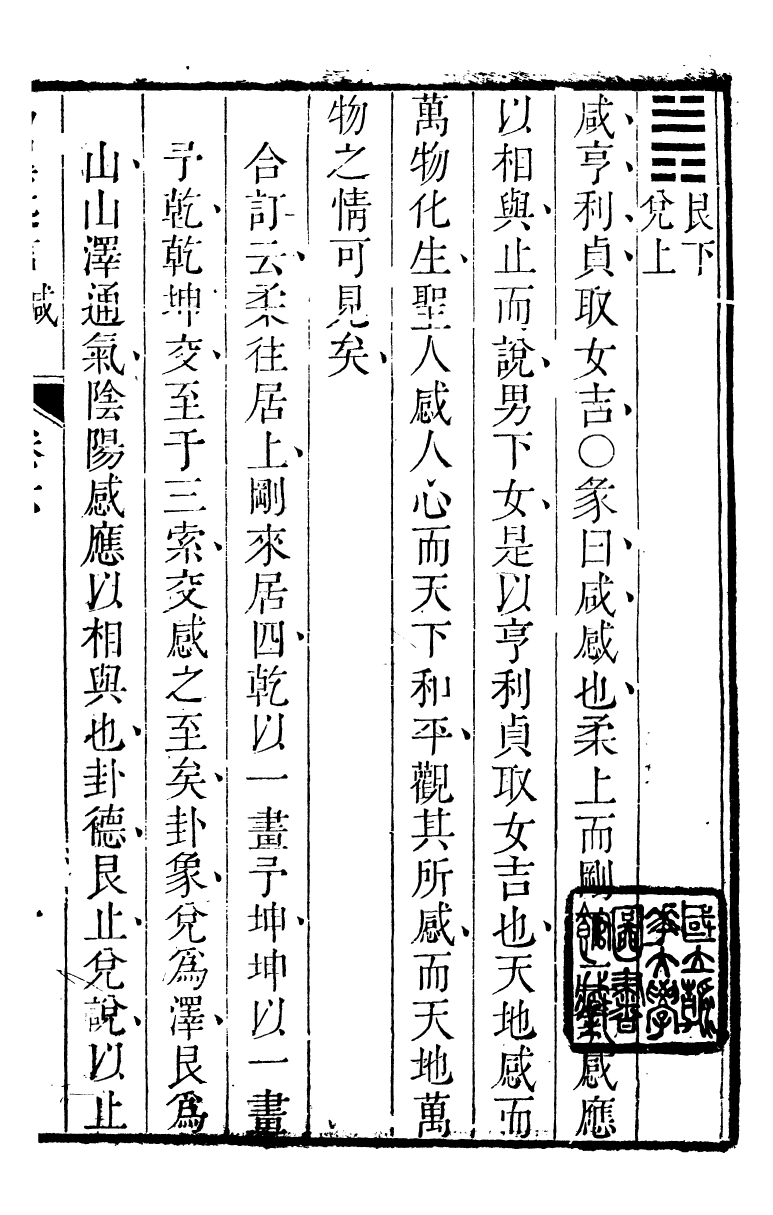 ䷞艮下兌上
咸亨利貞取女吉○彖曰咸感也柔上而剛感應
以相與止而說男下女是以亨利貞取女吉也天地感而
萬物化生聖人感人心而天下和平觀其所感而天地萬
物之情可見矣
合訂云柔往居上剛來居四乾以一畫予坤坤以一畫
予乾乾坤交至于三索交感之至矣卦象兌爲澤艮爲
山山澤通氣陰陽感應以相與也卦德艮止兌說以止
咸